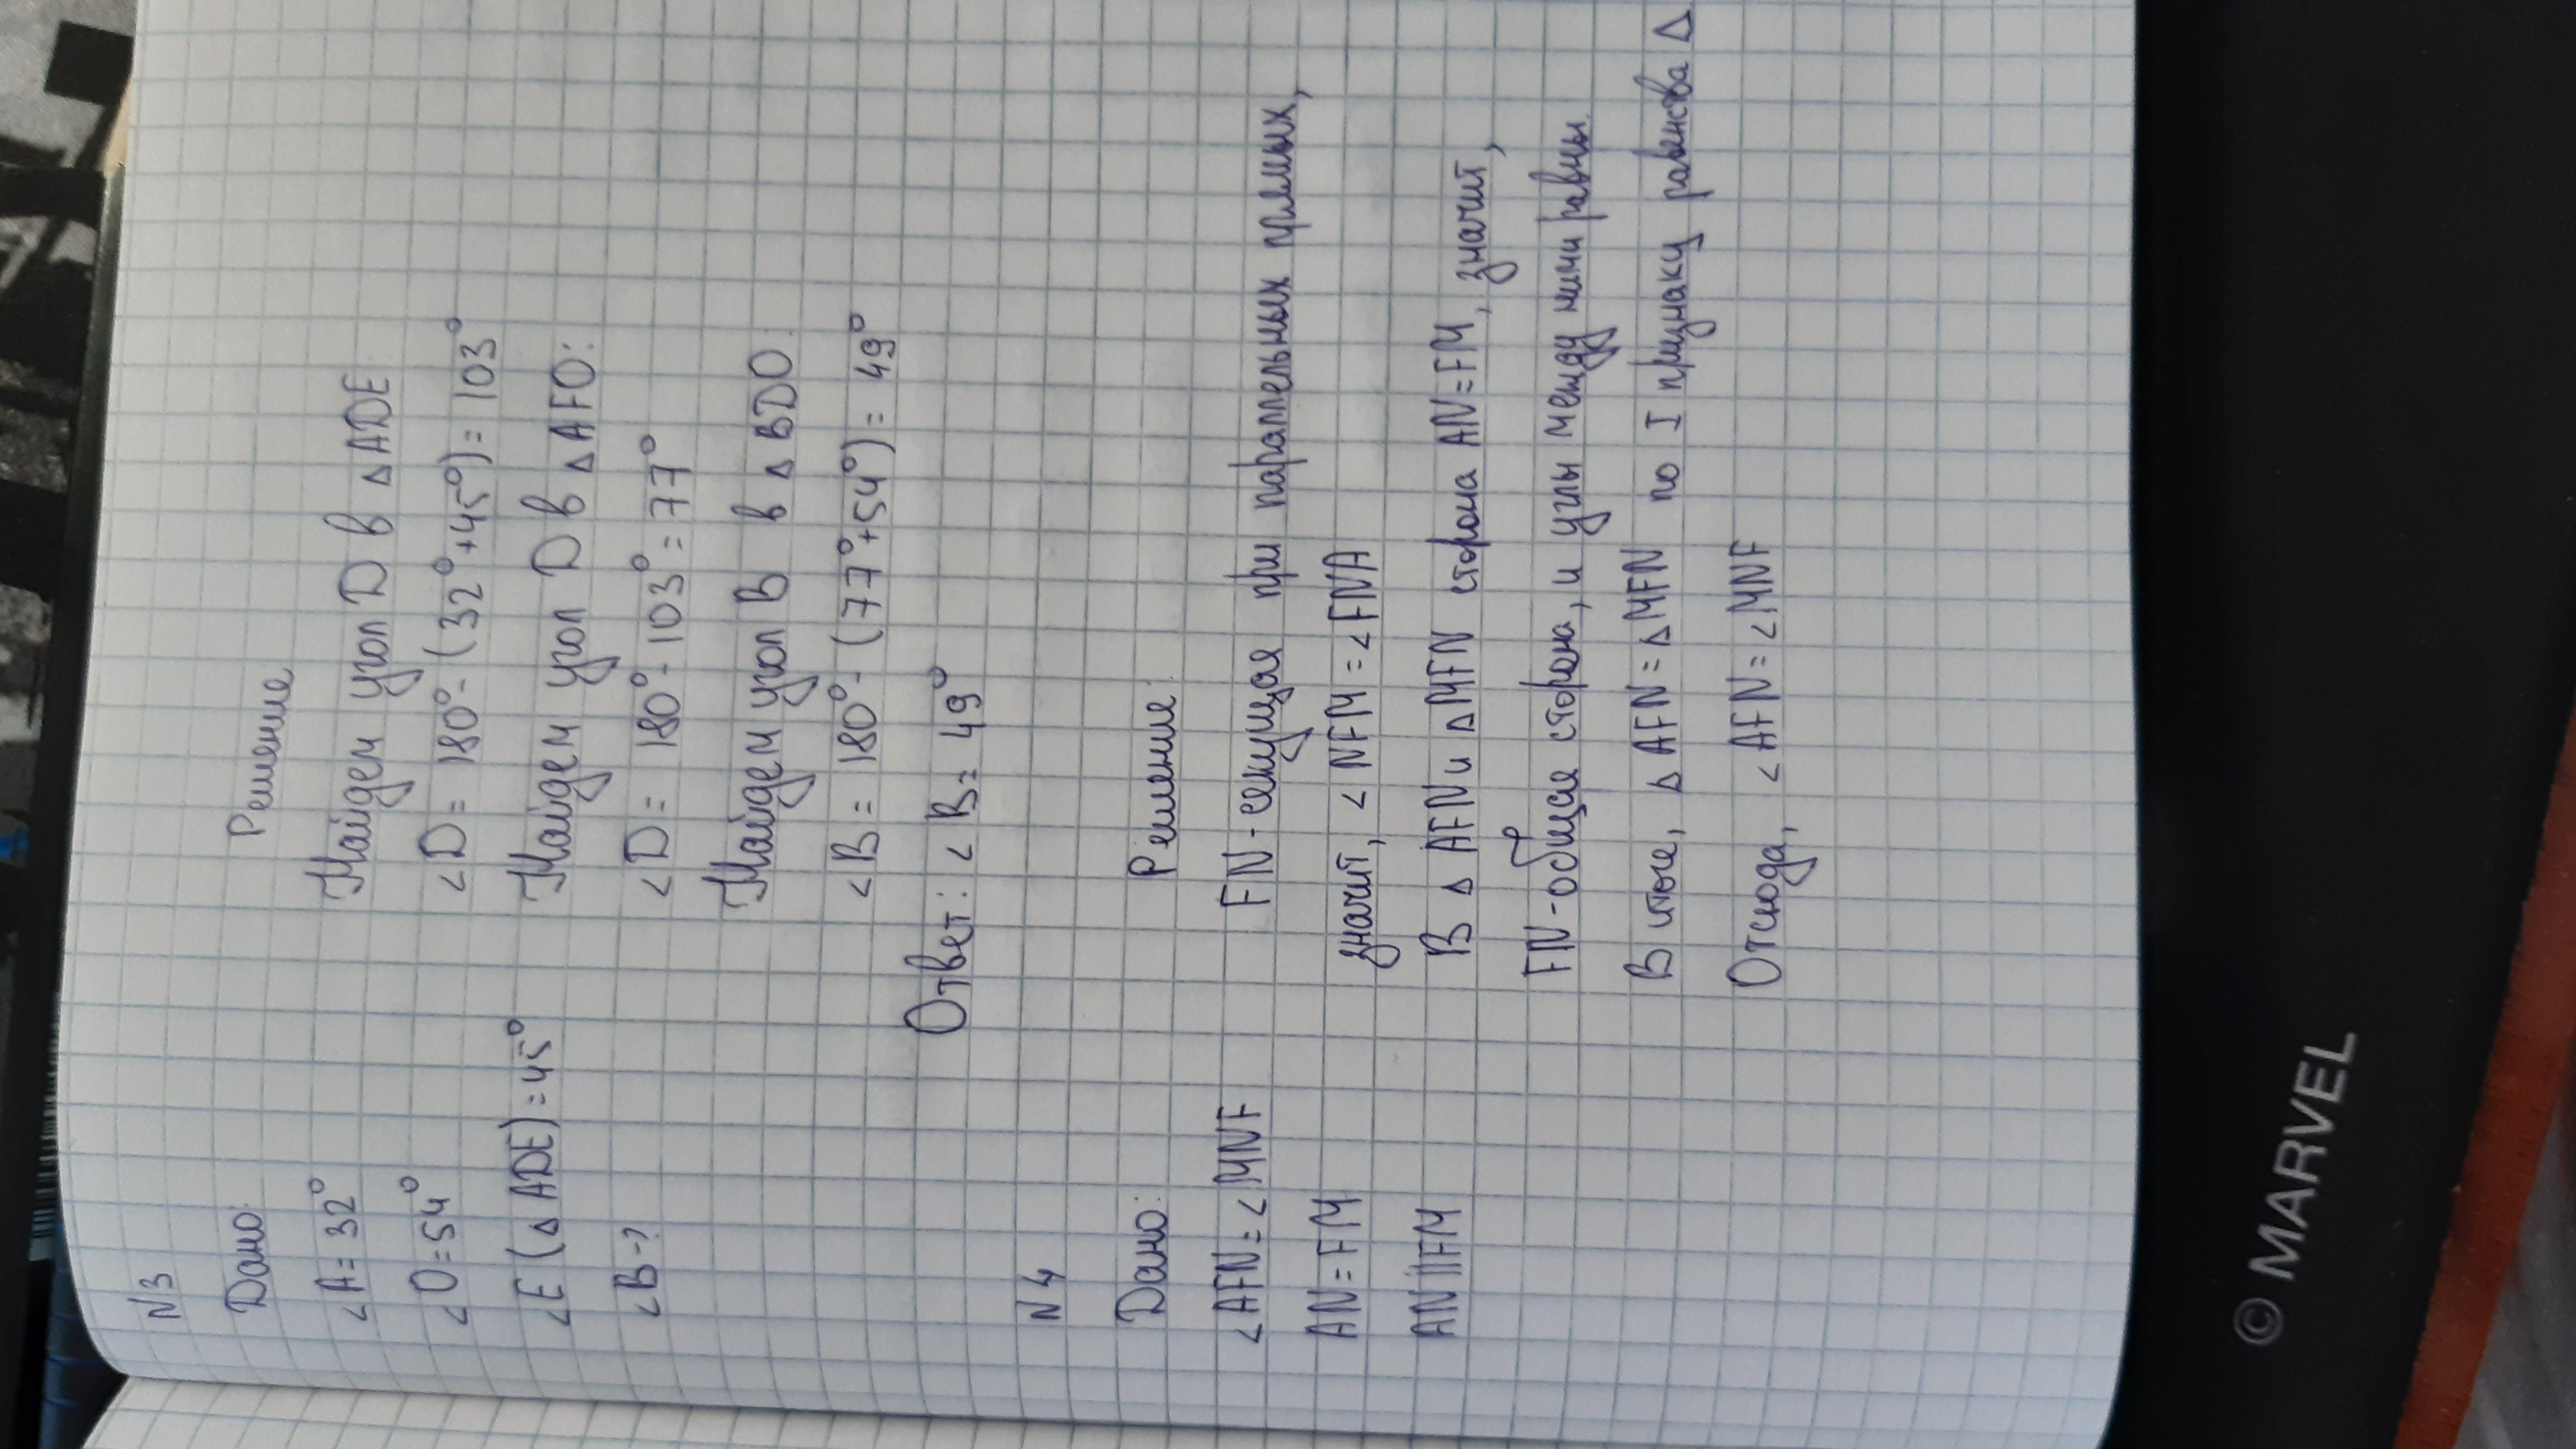 N3
Дано:
∠A = 32°
∠O = 54°
∠E (△ ADE) = 45°
∠B - ?
Решение
Найдем угол D в △ ADE
∠D = 180° - (32° + 45°) = 103°
Найдем угол D в △ AFO:
∠D = 180° - 103° = 77°
Найдем угол B в △ BDO:
∠B = 180° - (77° + 54°) = 49°
Ответ: ∠B = 49°
N4
Дано:
∠AFN = ∠MNF
AN = FM
AN || FM
Решение:
FN - секущая при параллельных прямых,
значит, ∠NFM = ∠FNA
В △ AFN и △ MFN сторона AN = FM, значит,
FN - общая сторона, и углы между ними равны.
В итоге, △ AFN = △ MFN по I признаку равенства △
Отсюда, ∠AFN = ∠MNF
© MARVEL